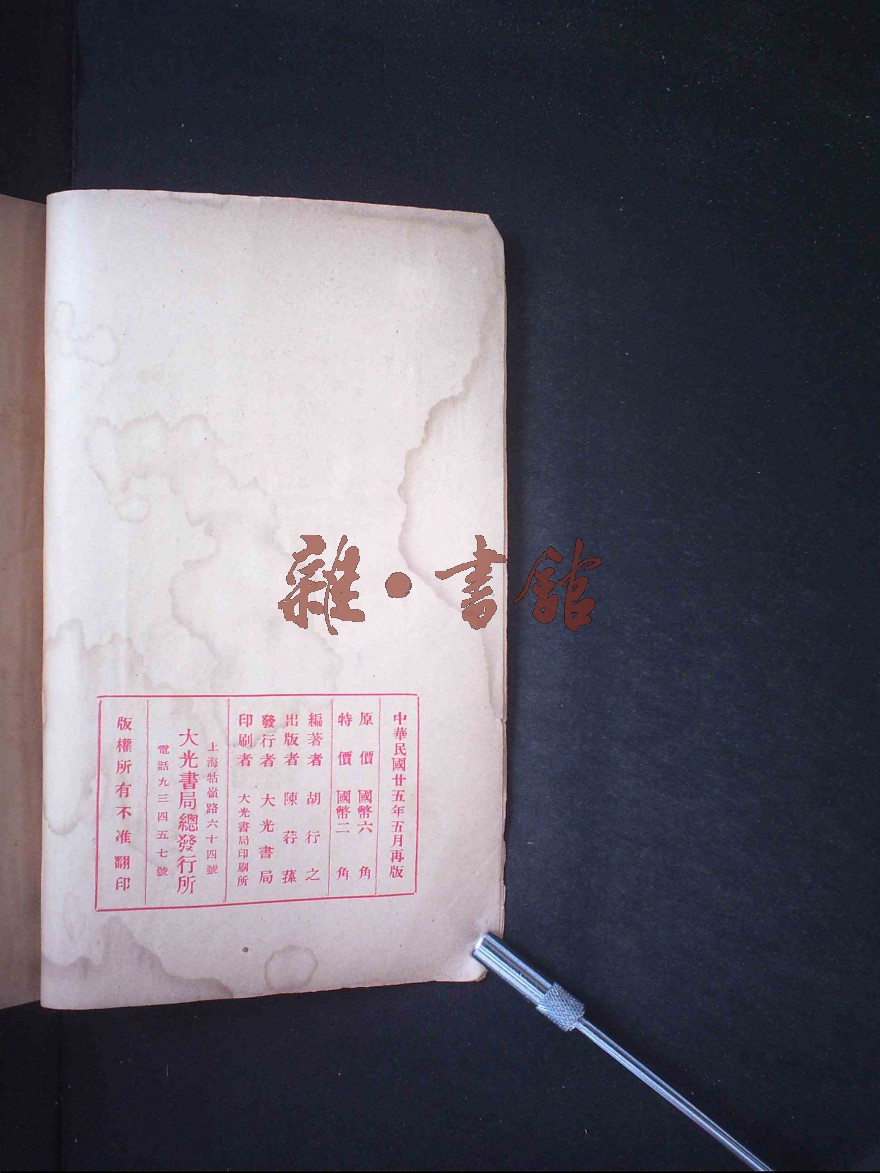 中華民國廿五年五月再版
原價 國幣六角
特價 國幣二角
編著者 胡行之
出版者 陳荇蓀
發行者 大光書局
印刷者 大光書局印刷所
上海牯嶺路六十四號
大光書局總發行所
電話九三四五七號
版權所有不准翻印
雜·書館